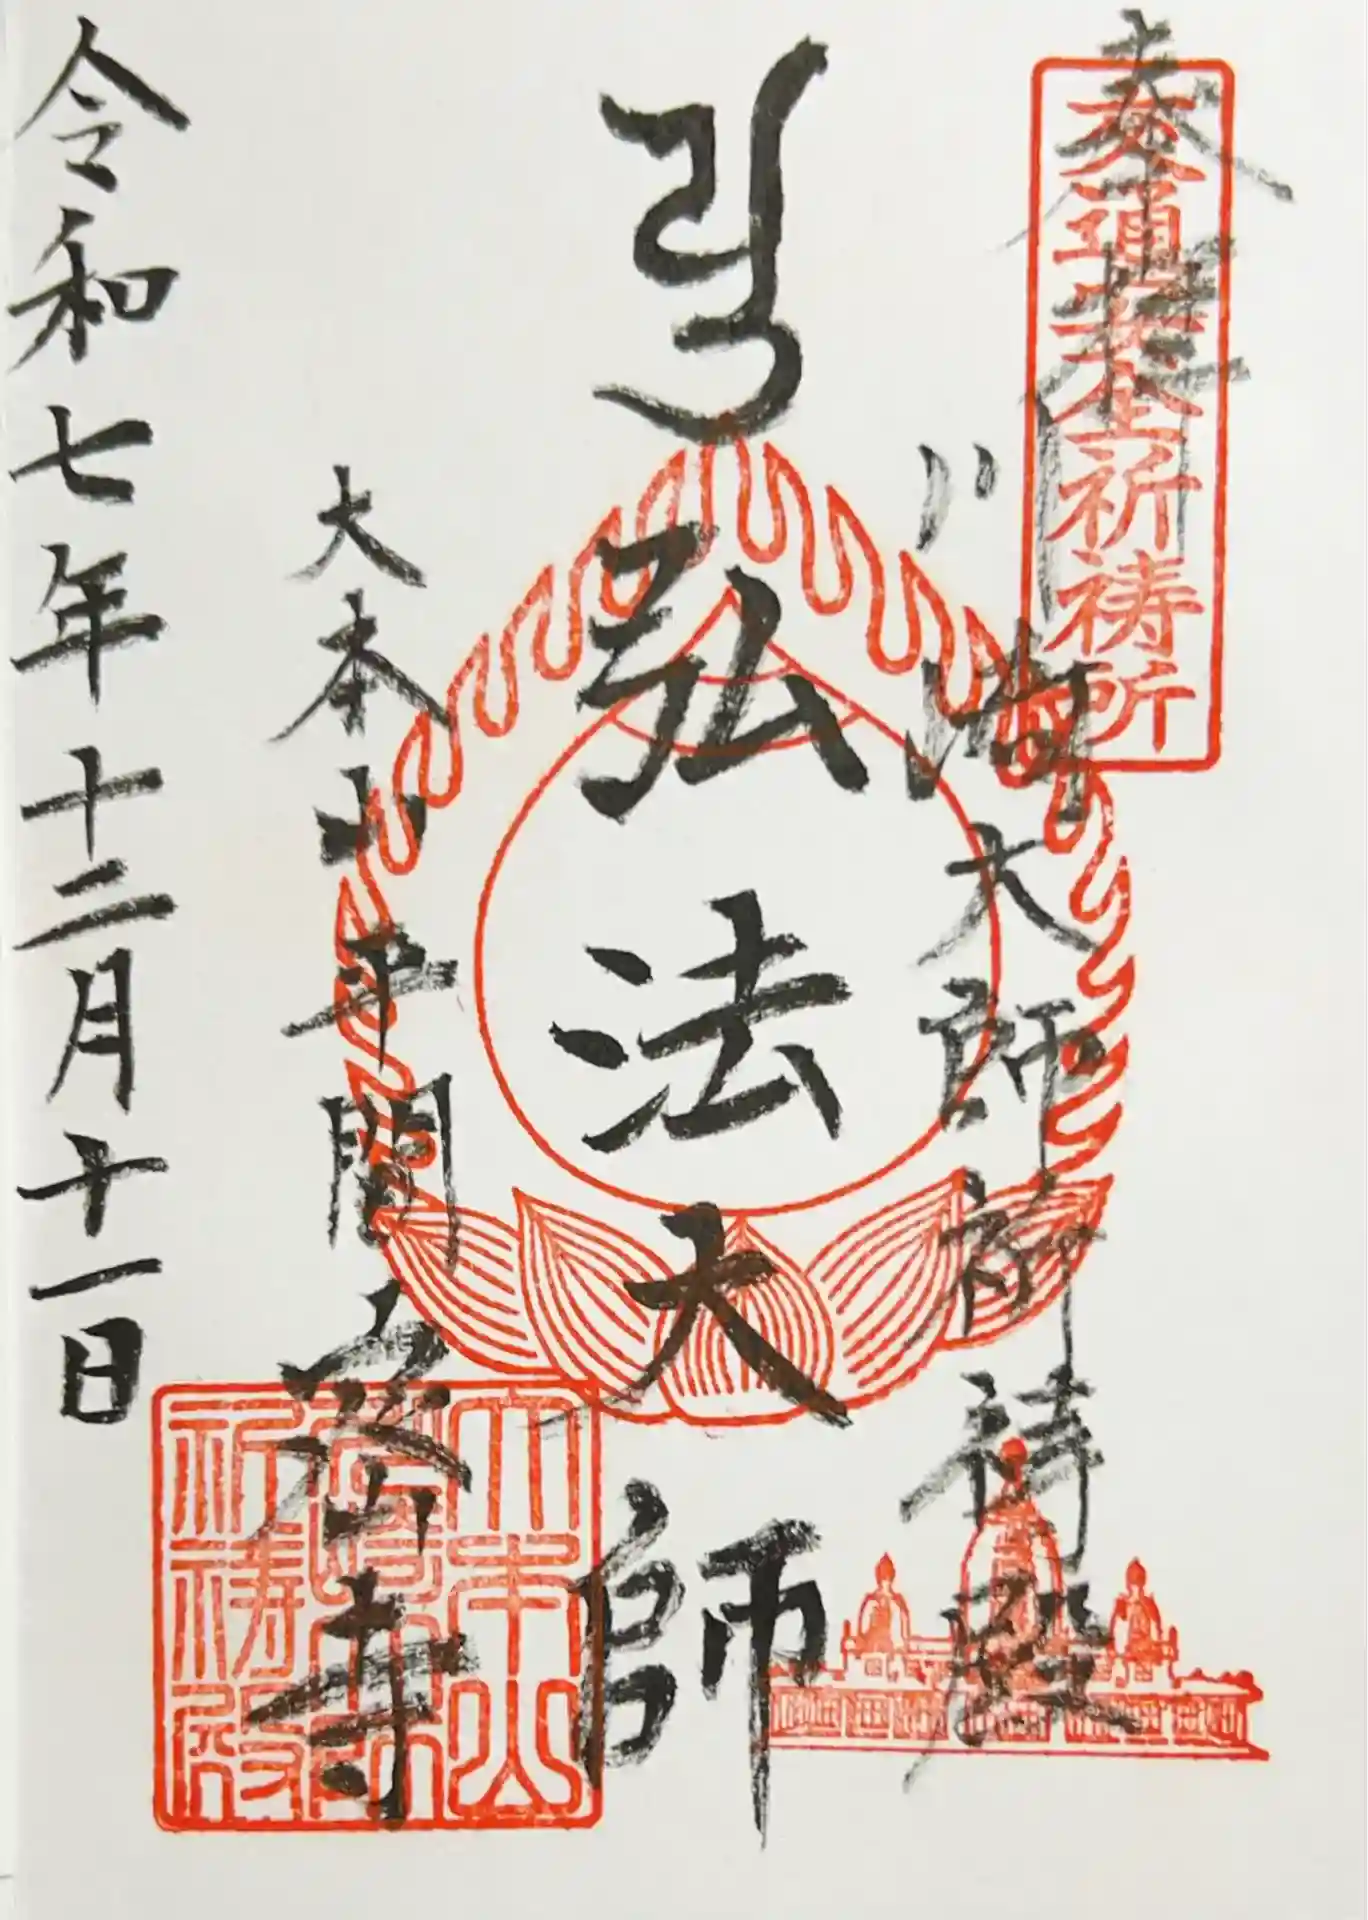 奉拝
交通安全祈祷所
川崎大師祈祷殿
弘法大師
大本山平間寺
大本山
祈祷殿
令和七年十二月十一日